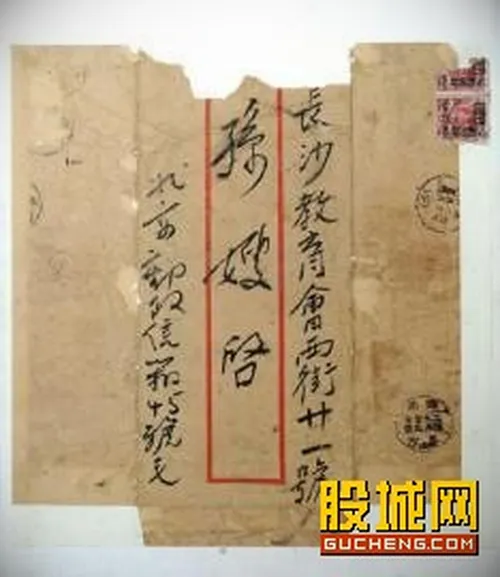 長沙教育會西街廿一號
孫嫂启
北京郵政信箱十五號毛
股城网
GUCHENG.COM